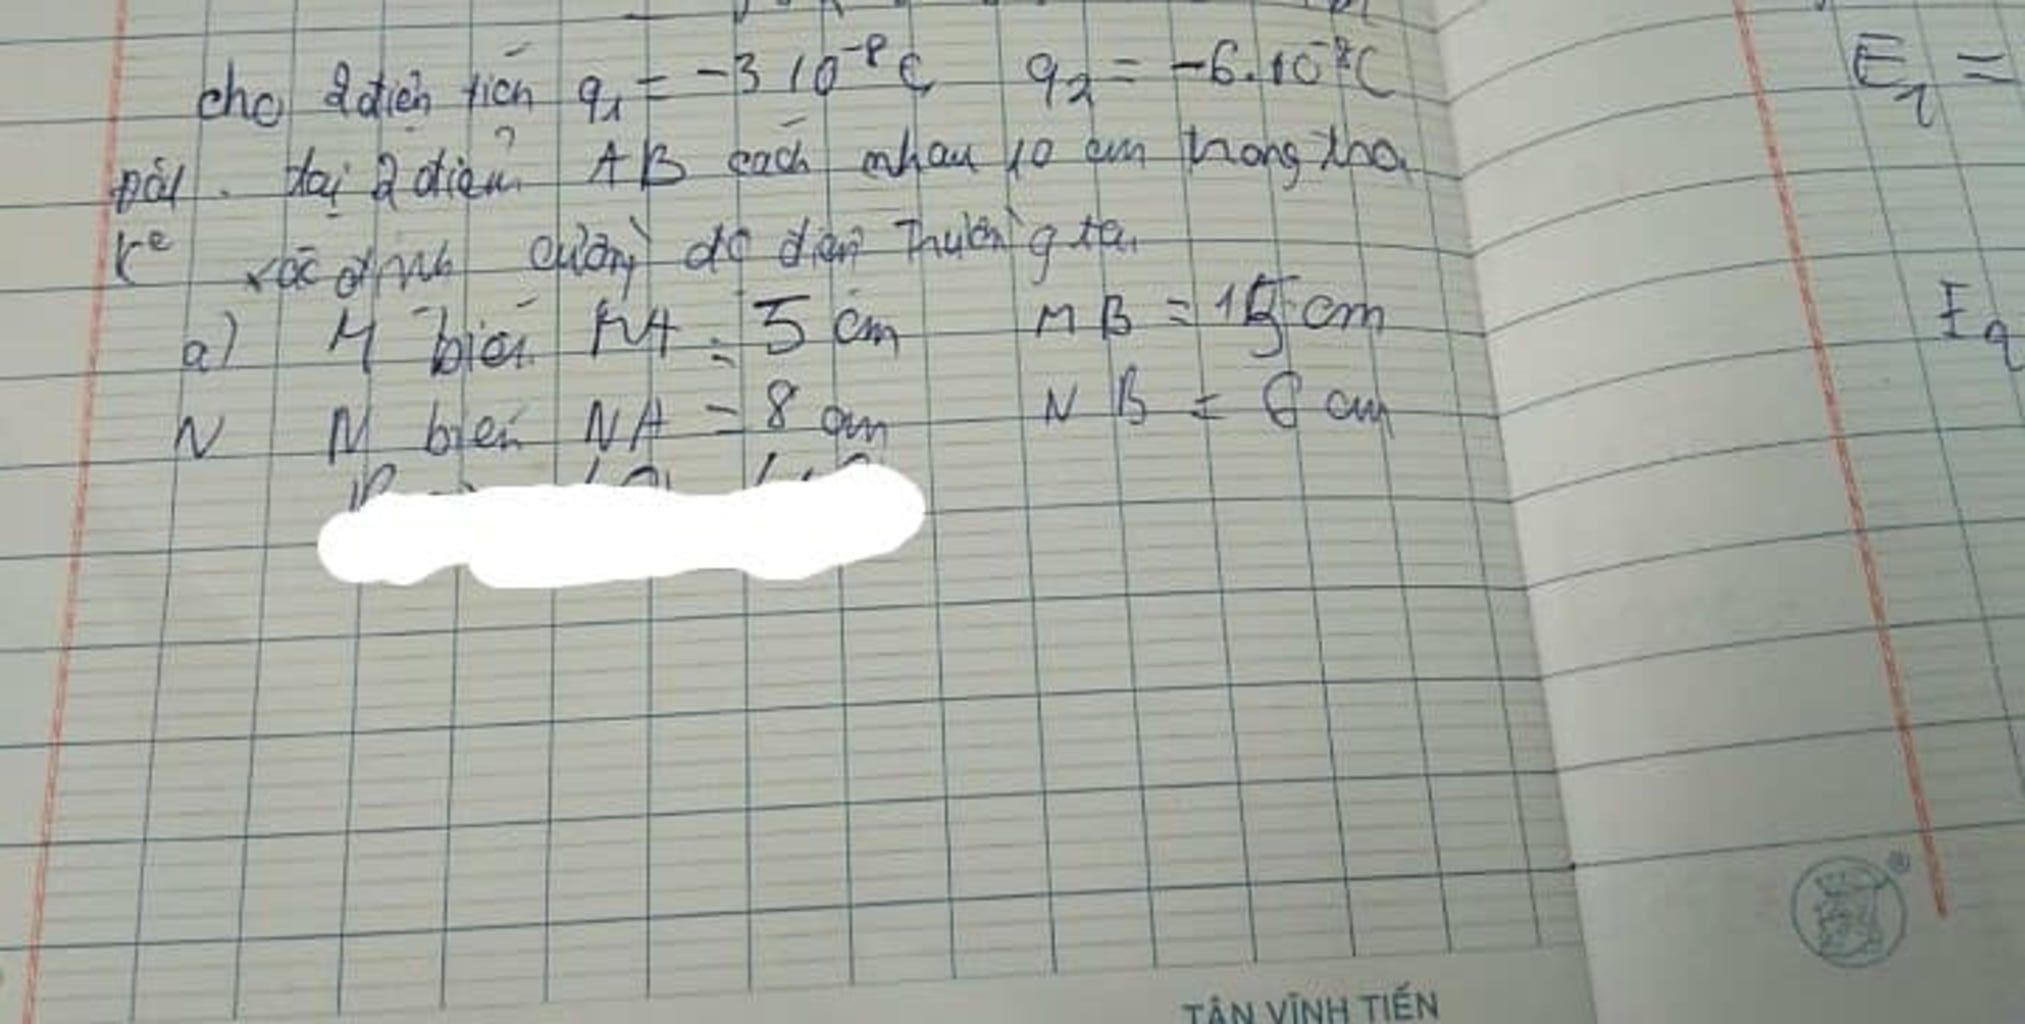 cho 2 điện tích q₁ = -3 10⁻⁸ C q₂ = -6.10⁻⁸C
đặt tại 2 điểm AB cách nhau 10 cm trong
xác định cường độ điện trường tại
a) M biết MA = 5 cm MB = 15 cm
N N biết NA = 8 cm NB = 6 cm
E₁ =
E₂
TÂN VĨNH TIẾN
®